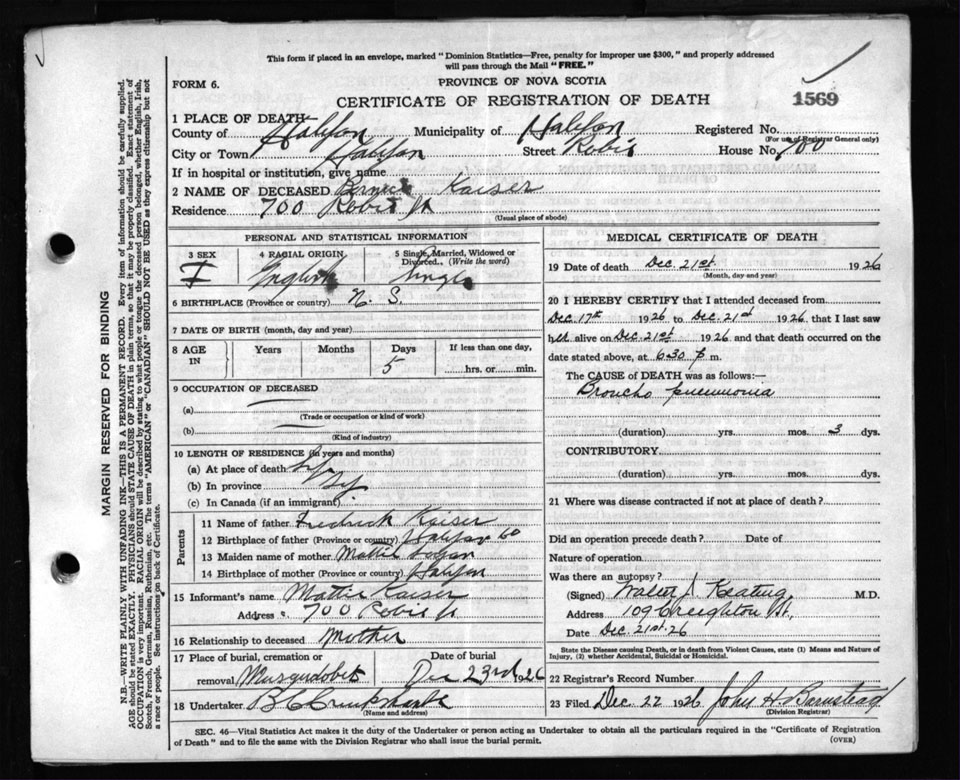 This form if placed in an envelope, marked "Dominion Statistics—Free, penalty for improper use $300," and properly addressed
will pass through the Mail "FREE."
FORM 6.
PROVINCE OF NOVA SCOTIA
CERTIFICATE OF REGISTRATION OF DEATH
1569
1 PLACE OF DEATH
County of Halifax Municipality of Halifax Registered No.
(For use of Registrar General only)
City or Town Halifax Street Robie House No. 700
If in hospital or institution, give name
2 NAME OF DECEASED Kaiser
Residence 700 Robie St
(Usual place of abode)
PERSONAL AND STATISTICAL INFORMATION
3 SEX
F
4 RACIAL ORIGIN
English
5 Single, Married, Widowed or
Divorced. (Write the word)
Single
6 BIRTHPLACE (Province or country) N. S.
7 DATE OF BIRTH (month, day and year)
8 AGE
IN
Years
Months
Days
5
If less than one day,
hrs. or min.
9 OCCUPATION OF DECEASED
(a)
(Trade or occupation or kind of work)
(b)
(Kind of industry)
10 LENGTH OF RESIDENCE (in years and months)
(a) At place of death
(b) In province
(c) In Canada (if an immigrant)
Parents
11 Name of father Fredrick Kaiser
12 Birthplace of father (Province or country) Halifax Co
13 Maiden name of mother Mattie
14 Birthplace of mother (Province or country) Halifax
15 Informant's name Mattie Kaiser
Address 700 Robie St
16 Relationship to deceased Mother
17 Place of burial, cremation or
removal Musquodoboit
Date of burial
Dec 23rd 1926
18 Undertaker
(Name and address)
MEDICAL CERTIFICATE OF DEATH
19 Date of death Dec. 21st. 1926
(Month, day and year)
20 I HEREBY CERTIFY that I attended deceased from
Dec. 17th 1926 to Dec. 21st 1926 that I last saw
her alive on Dec. 21st. 1926 and that death occurred on the
date stated above, at 6.30 p m.
The CAUSE of DEATH was as follows:—
Broncho pneumonia
(duration) yrs. mos. 3 dys.
CONTRIBUTORY
(duration) yrs. mos. dys.
21 Where was disease contracted if not at place of death?
Did an operation precede death? Date of
Nature of operation
Was there an autopsy?
(Signed) Walter J Keating M.D.
Address 109 Creighton St.,
Date Dec. 21st. 26
State the Disease causing Death, or in death from Violent Causes, state (1) Means and Nature of
Injury, (2) whether Accidental, Suicidal or Homicidal.
22 Registrar's Record Number
23 Filed Dec 22 1926 John H Barnstead
(Division Registrar)
SEC. 46—Vital Statistics Act makes it the duty of the Undertaker or person acting as Undertaker to obtain all the particulars required in the "Certificate of Registration
of Death" and to file the same with the Division Registrar who shall issue the burial permit.
(OVER)
MARGIN RESERVED FOR BINDING
N.B.—WRITE PLAINLY WITH UNFADING INK—THIS IS A PERMANENT RECORD. Every item of information should be carefully supplied.
AGE should be stated EXACTLY. PHYSICIANS should STATE CAUSE OF DEATH in plain terms, so that it may be properly classified. Exact statement of
OCCUPATION is very important. RACIAL ORIGIN will be described by stating to what people or tongue the deceased person belonged, whether English, Irish,
Scotch, French, German, Russian, Ruthenian, etc. The terms "AMERICAN" or "CANADIAN" SHOULD NOT BE USED as they express citizenship but not
a race or people. See instructions on back of Certificate.